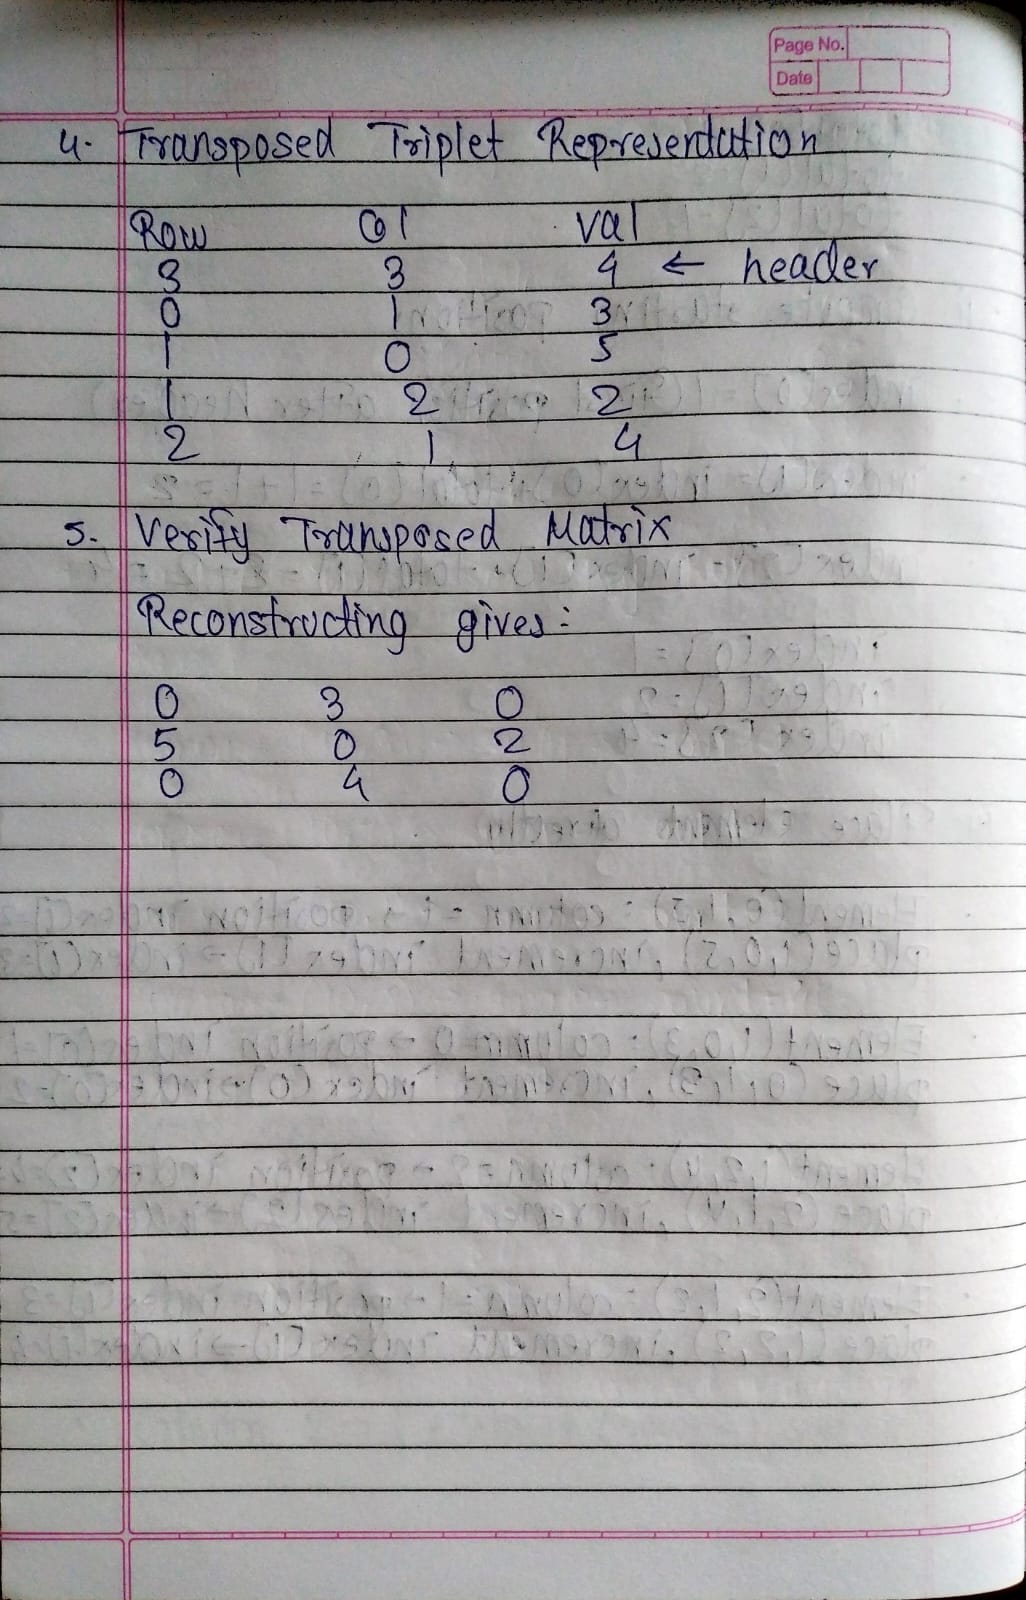 Page No.
Date
4. Transposed Triplet Representation
Row Col val
3 3 4 ← header
0 1 3
1 0 5
1 2 2
2 1 4
5. Verify Transposed Matrix
Reconstructing gives:
0 3 0
5 0 2
0 4 0